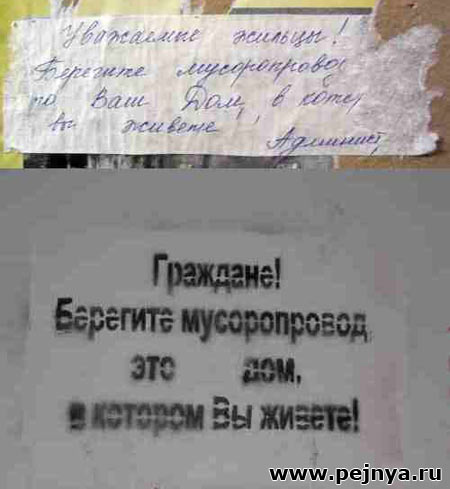 Уважаемые жильцы!
Берегите мусоропровод
то Ваш Дом, в котор
вы живете!
Админист
Граждане!
Берегите мусоропровод
это дом,
в котором Вы живете!
www.pejnya.ru